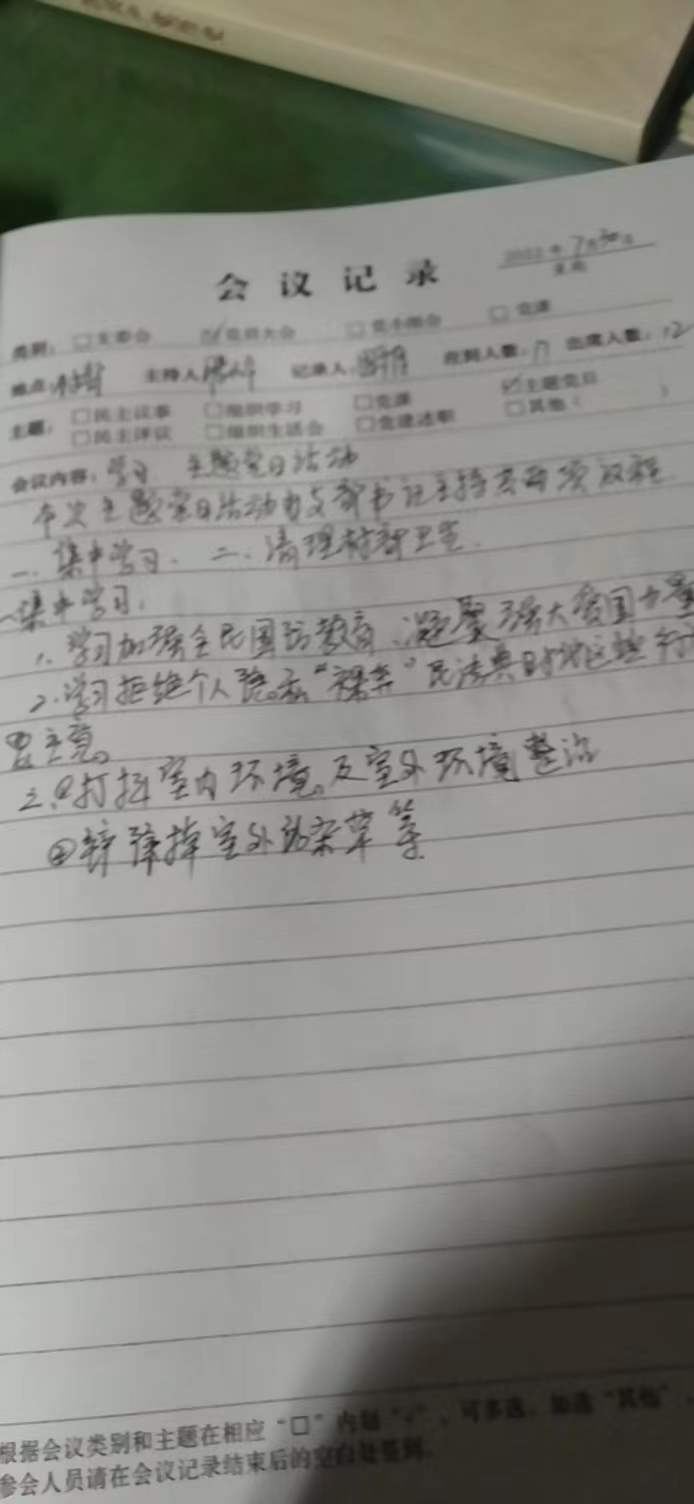 会议记录
2022年7月30日
类别：□支委会 ☑党员大会 □党小组会 □党课
地点： 主持人 记录人： 应到人数：17 出席人数：12
主题：□民主议事 □组织学习 □党课 ☑主题党日
□民主评议 □组织生活会 □党建述职 □其他（ ）
会议内容：学习 主题党日活动
本次主题党日活动由支部书记主持共两项议程
一、集中学习、二、清理村部卫生.
一集中学习：
1、学习加强全民国防教育、凝聚强大爱国力量
2.学习拒绝个人隐私“裸奔”民法典时代这些行
二、①打扫室内环境及室外环境整治
②掉室外的杂草等
根据会议类别和主题在相应“□”内划“√”，可多选，如选“其他”，
参会人员请在会议记录结束后的空白处签到.